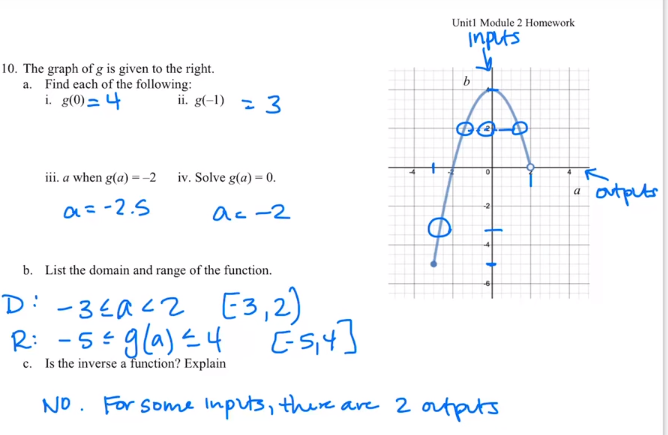 Unit1 Module 2 Homework
inputs
10. The graph of g is given to the right.
a. Find each of the following:
i. g(0) = 4 ii. g(−1) = 3
b
2
-4 -2 0 4
a outputs
iii. a when g(a) = −2 iv. Solve g(a) = 0.
a = -2.5 a = -2
-2
-4
-6
b. List the domain and range of the function.
D: -3 ≤ a < 2 [-3, 2)
R: -5 ≤ g(a) ≤ 4 [-5, 4]
c. Is the inverse a function? Explain
NO. For some inputs, there are 2 outputs